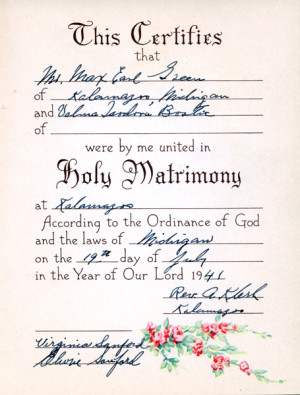 This Certifies
that
Mr. Max Earl Green
of Kalamazoo Michigan
and Velma Isadora Bostic
of
were by me united in
Holy Matrimony
at Kalamazoo
According to the Ordinance of God
and the laws of Michigan
on the 19th day of July
in the Year of Our Lord 1941
Rev. A.
Kalamazoo
Virginia Sanford
Sanford